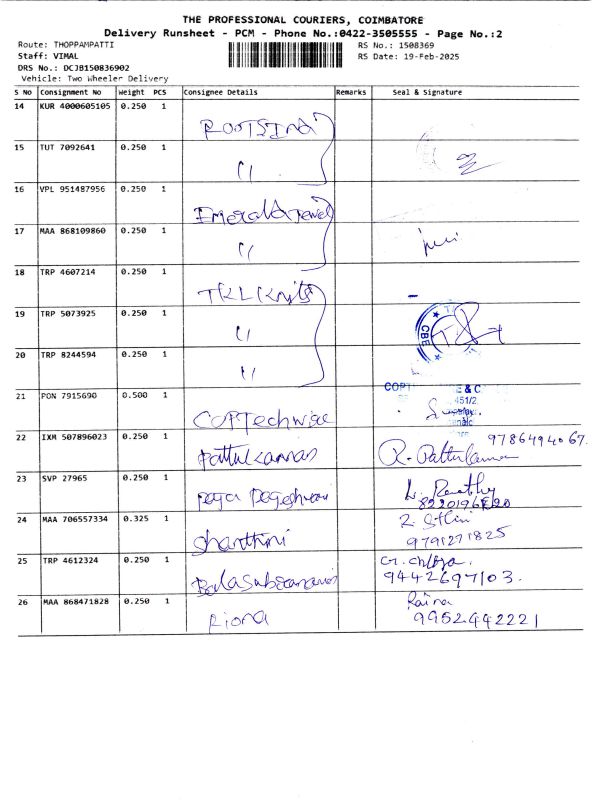 THE PROFESSIONAL COURIERS, COIMBATORE
Delivery Runsheet - PCM - Phone No.:0422-3505555 - Page No.:2
Route: THOPPAMPATTI
RS No.: 1508369
Staff: VIMAL
RS Date: 19-Feb-2025
DRS No.: DCJB150836902
Vehicle: Two Wheeler Delivery
S NO Consignment No Weight PCS Consignee Details Remarks Seal & Signature
14 KUR 4000605105 0.250 1
15 TUT 7092641 0.250 1 "
16 VPL 951487956 0.250 1 Emerald Jewel
17 MAA 868109860 0.250 1 "
18 TRP 4607214 0.250 1 TKL Knits
19 TRP 5073925 0.250 1 " CBE
20 TRP 8244594 0.250 1 "
21 PON 7915690 0.500 1
22 IXM 507896023 0.250 1 Pattukannas R. Pattukanna 9786494067.
23 SVP 27965 0.250 1
24 MAA 706557334 0.325 1 Shanthini 9791271825
25 TRP 4612324 0.250 1 9442697103.
26 MAA 868471828 0.250 1 Riona Raina 9952442221